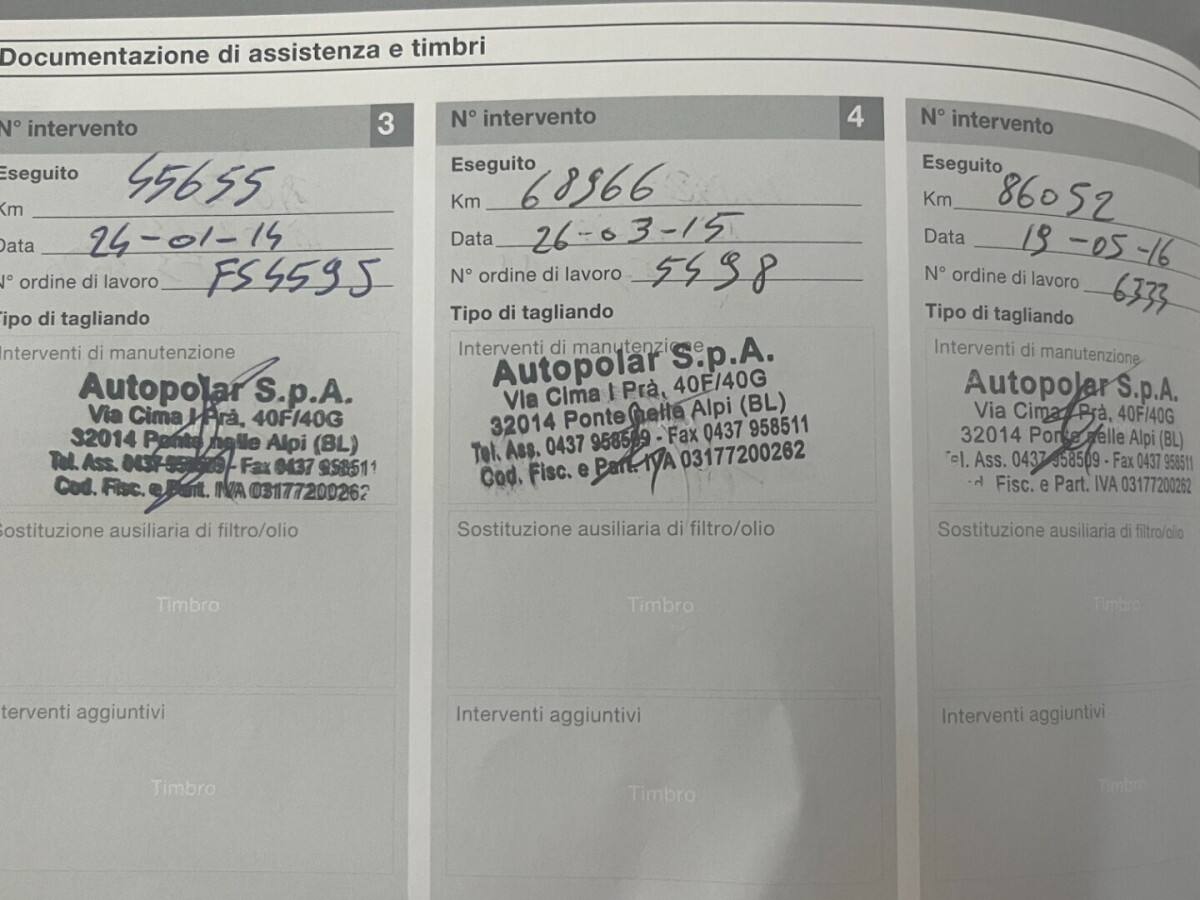 Documentazione di assistenza e timbri
N° intervento 3
Eseguito
Km 45655
Data 24-01-14
N° ordine di lavoro
Tipo di tagliando
Interventi di manutenzione
Autopolar S.p.A.
Via Cima I Prà, 40F/40G
32014 Ponte nelle Alpi (BL)
Tel. Ass. 0437 958509 - Fax 0437 958511
Cod. Fisc. e Part. IVA 03177200262
Sostituzione ausiliaria di filtro/olio
Timbro
Interventi aggiuntivi
Timbro
N° intervento 4
Eseguito
Km 68966
Data 26-03-15
N° ordine di lavoro 5498
Tipo di tagliando
Interventi di manutenzione
Autopolar S.p.A.
Via Cima I Prà, 40F/40G
32014 Ponte nelle Alpi (BL)
Tel. Ass. 0437 958509 - Fax 0437 958511
Cod. Fisc. e Part. IVA 03177200262
Sostituzione ausiliaria di filtro/olio
Timbro
Interventi aggiuntivi
Timbro
N° intervento
Eseguito
Km 86052
Data 19-05-16
N° ordine di lavoro 6333
Tipo di tagliando
Interventi di manutenzione
Autopolar S.p.A.
Via Cima I Prà, 40F/40G
32014 Ponte nelle Alpi (BL)
Tel. Ass. 0437 958509 - Fax 0437 958511
Fisc. e Part. IVA 03177200262
Sostituzione ausiliaria di filtro/olio
Timbro
Interventi aggiuntivi
Timbro